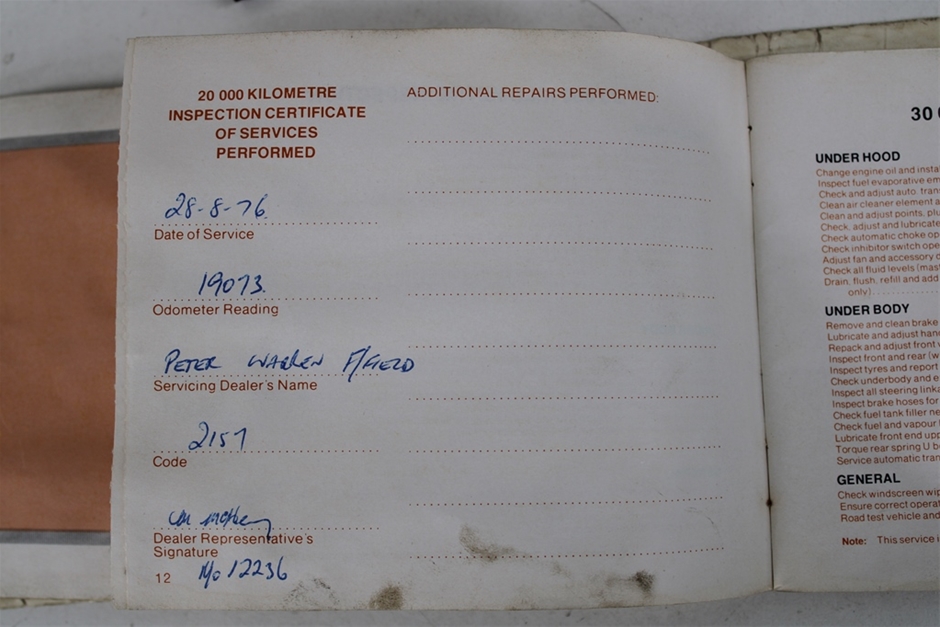 20 000 KILOMETRE
INSPECTION CERTIFICATE
OF SERVICES
PERFORMED
28-8-76
Date of Service
19073.
Odometer Reading
PETER WARREN F/FIELD
Servicing Dealer's Name
2157
Code
Dealer Representative's
Signature
12
12236
ADDITIONAL REPAIRS PERFORMED:
30
UNDER HOOD
Change engine oil and insta
Inspect fuel evaporative em
Check and adjust auto tran
Clean air cleaner element a
Clean and adjust points, plu
Check, adjust and lubricate
Check automatic choke op
Check inhibitor switch ope
Adjust fan and accessory d
Check all fluid levels (mas
Drain, flush, refill and add
only)
UNDER BODY
Remove and clean brake
Lubricate and adjust han
Repack and adjust front w
Inspect front and rear (w
Inspect tyres and report
Check underbody and e
Inspect all steering linka
Inspect brake hoses for
Check fuel tank filler ne
Check fuel and vapour
Lubricate front end upp
Torque rear spring U b
Service automatic tran
GENERAL
Check windscreen wip
Ensure correct operat
Road test vehicle and
Note: This service i